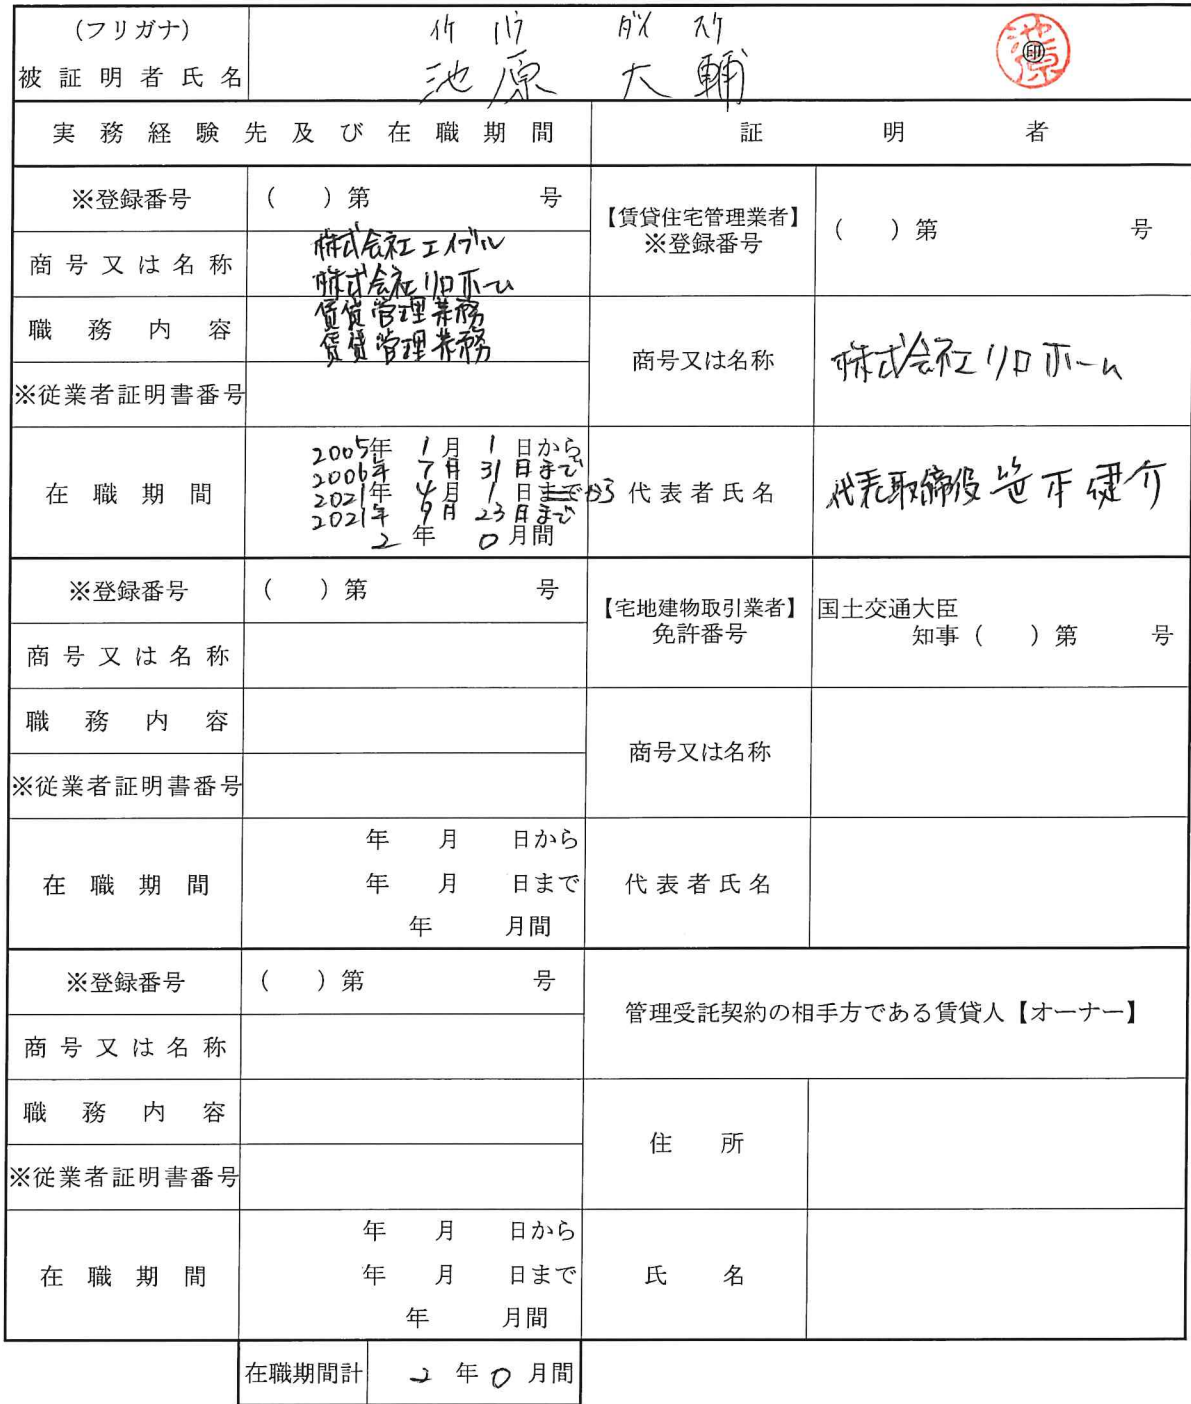 (フリガナ) イケ ハラ ダイ スケ
被証明者氏名 池原 大輔 ㊞ 池原
実務経験先及び在職期間 証明者
※登録番号 ( )第 号
商号又は名称 株式会社エイブル
株式会社リロホーム
職務内容 賃貸管理業務
賃貸管理業務
※従業者証明書番号
在職期間 2005年 1月 1日から
2006年 7月 31日まで
2021年 4月 1日まで から
2021年 9月 23日まで
2年 0月間
【賃貸住宅管理業者】
※登録番号 ( )第 号
商号又は名称 株式会社リロホーム
代表者氏名 代表取締役 笹本健介
※登録番号 ( )第 号
商号又は名称
職務内容
※従業者証明書番号
在職期間 年 月 日から
年 月 日まで
年 月間
【宅地建物取引業者】 国土交通大臣
免許番号 知事( )第 号
商号又は名称
代表者氏名
※登録番号 ( )第 号
商号又は名称
職務内容
※従業者証明書番号
在職期間 年 月 日から
年 月 日まで
年 月間
管理受託契約の相手方である賃貸人【オーナー】
住所
氏名
在職期間計 2年0月間